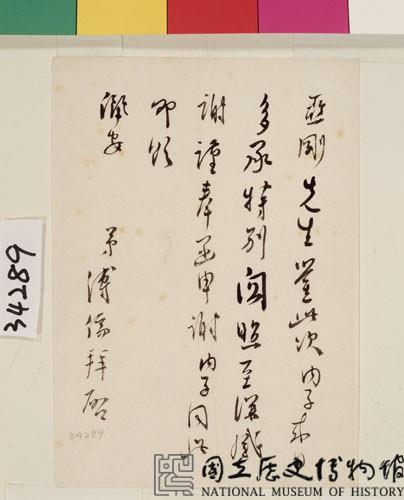 亞剛先生鑒此次內子來日
多承特別關照至深感
謝謹奉函申謝內子同此
即頌
潭安
弟溥儒拜啓
34289
34289
國立歷史博物館
NATIONAL MUSEUM OF HISTORY